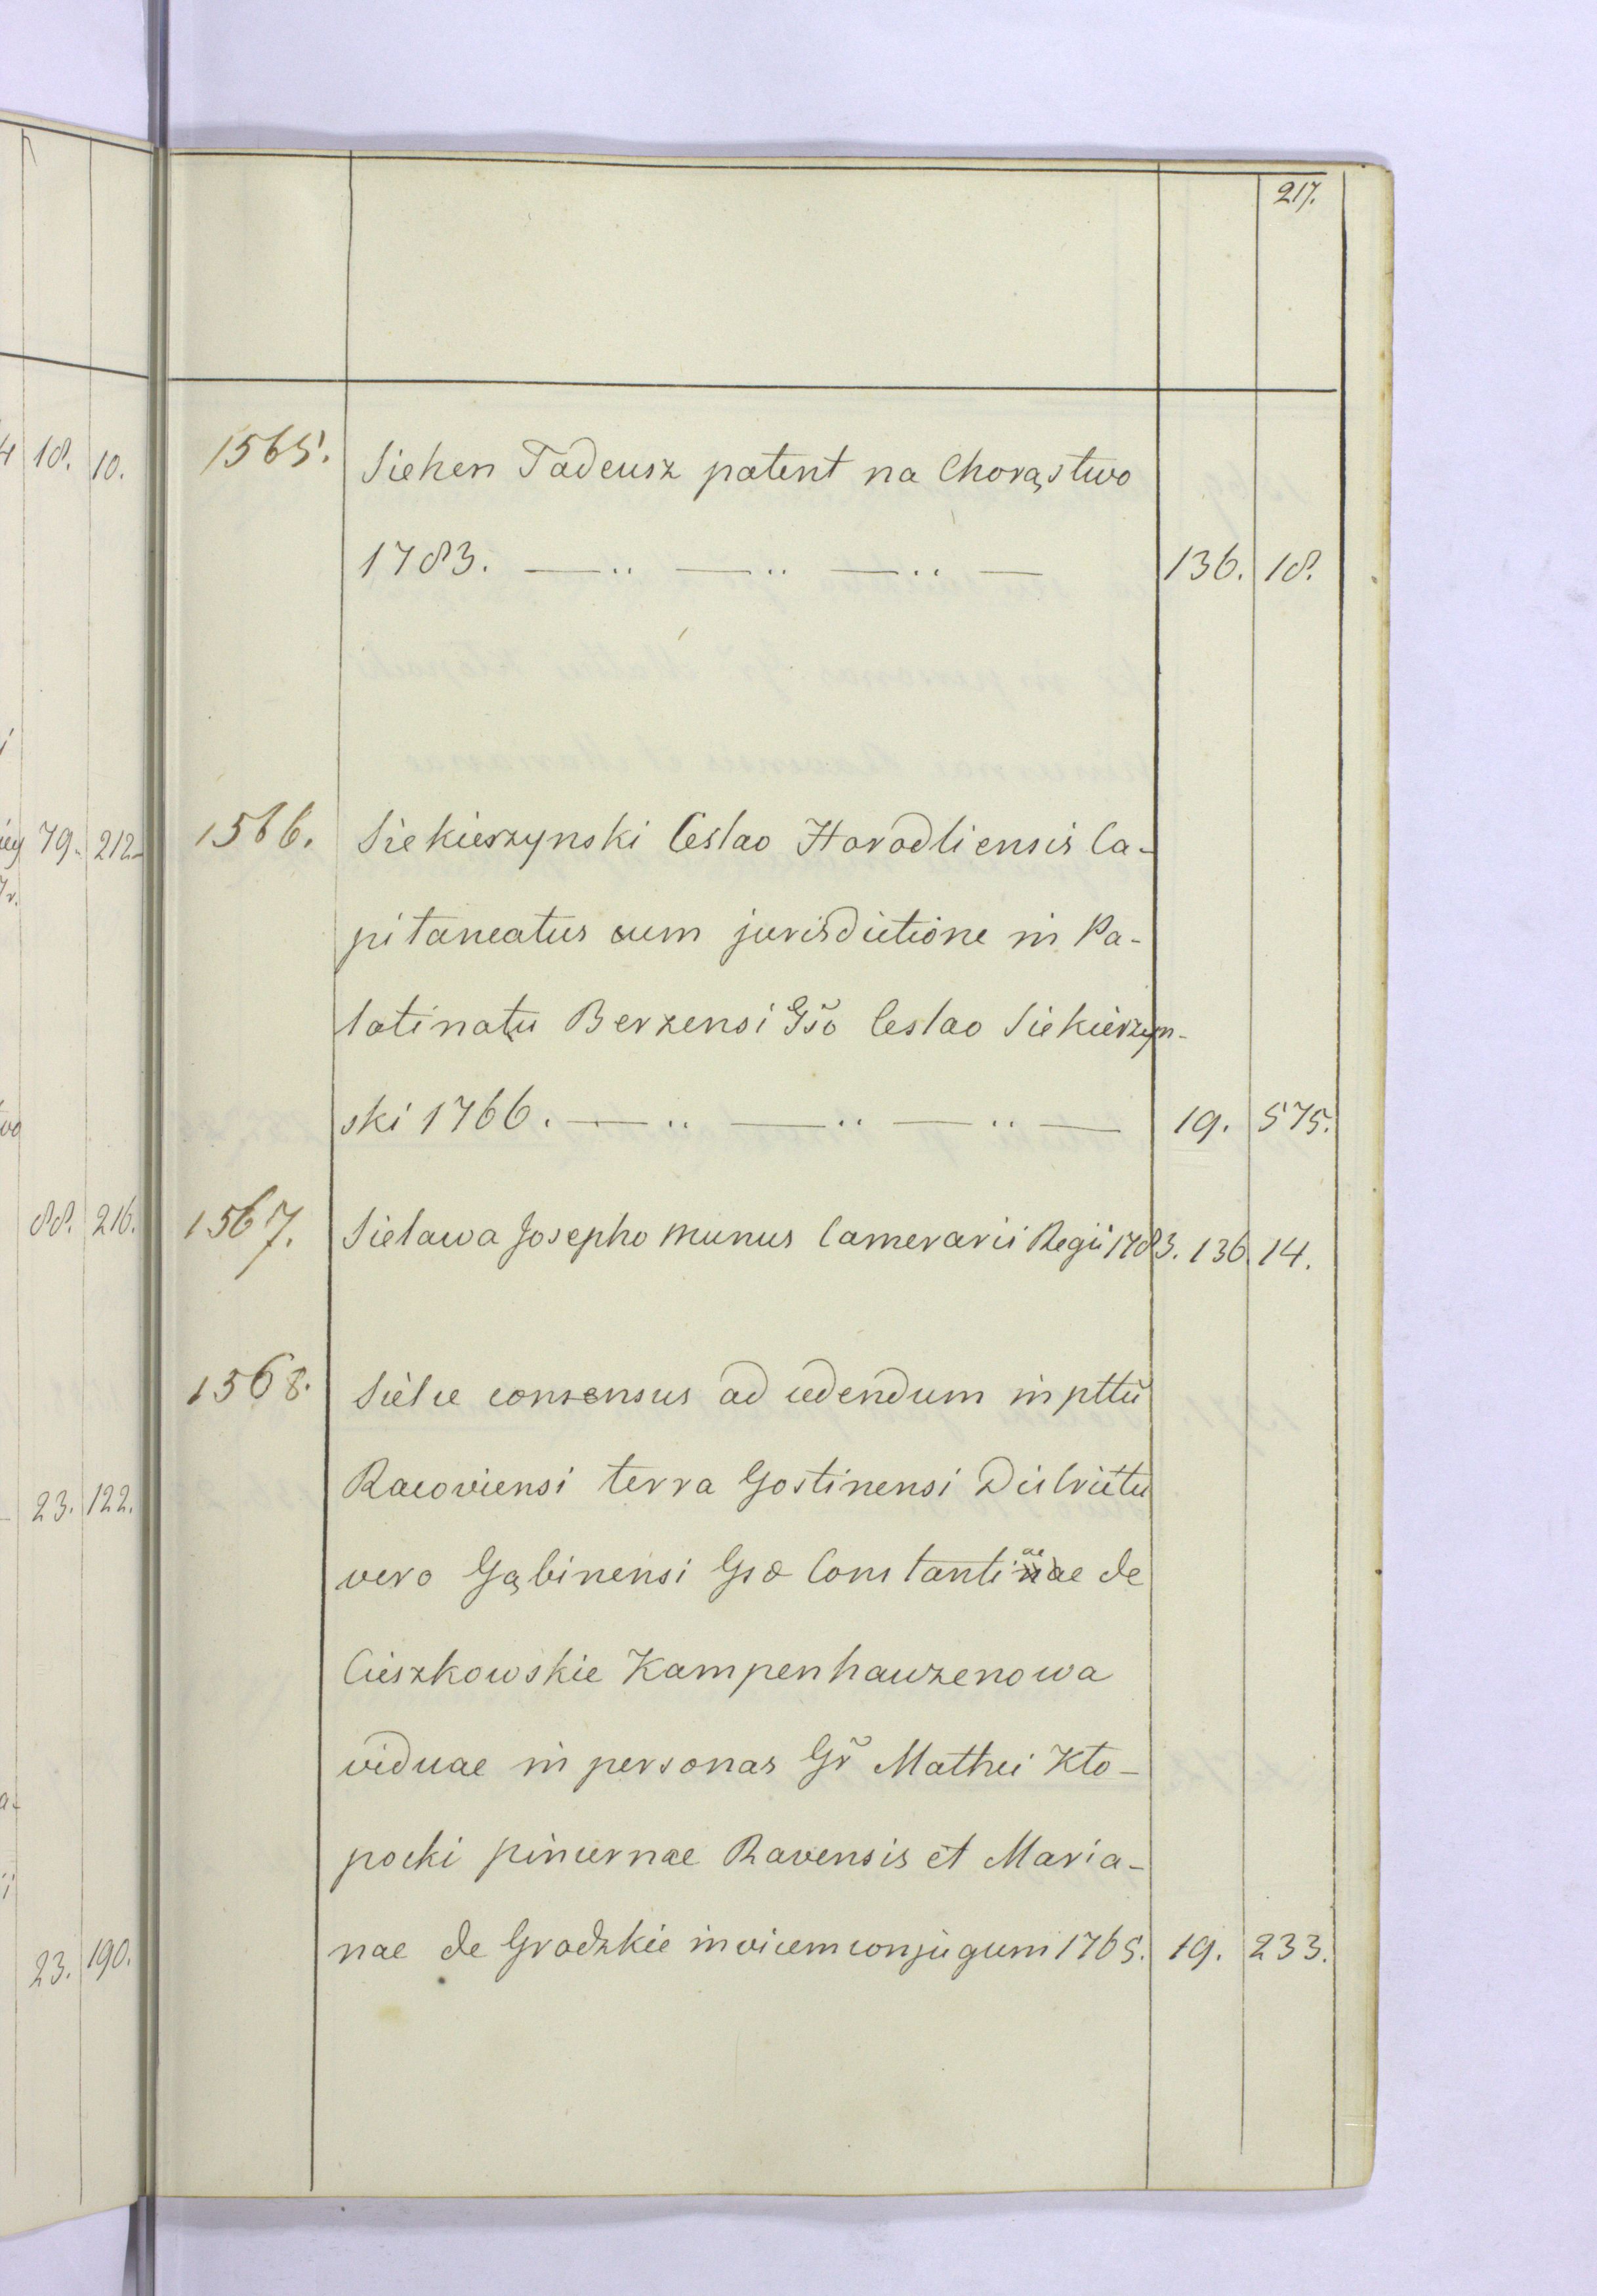 217.
1565. Siehen Tadeusz patent na Chorąstwo
1783. — ·· — ·· — ·· — 136. 18.
1566. Siekierzynski Ceslao Horodliensis Ca-
pitaneatus cum jurisdictione in Pa-
latinatu Berzensi Gšo Ceslao Siekierzyn-
ski 1766. — ·· — ·· — ·· — 19. 575.
1567. Sielawa Josepho munus Camerarii Regii 1783. 136. 14.
1568. Sielce consensus ad cedendum in pttŭ
Racoviensi terra Gostinensi Districtu
vero Gąbinensi Gsæ Constantiae de
Cieszkowskie Kampenhauzenowa
viduae in personas Gř Mathei Kło-
pocki pincernae Ravensis et Maria-
nae de Grodzkie invicem conjugum 1765. 19. 233.
18. 10.
79. 212.
88. 216.
23. 122.
23. 190.